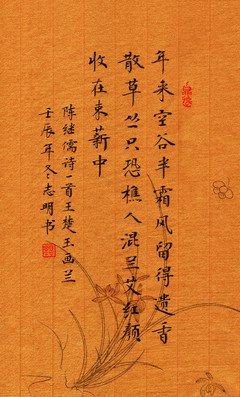 年来空谷半霜风留得遗香
散草丛只恐樵人混兰艾红颜
收在束薪中
陈继儒诗一首王楚玉画兰
壬辰年冬志明书